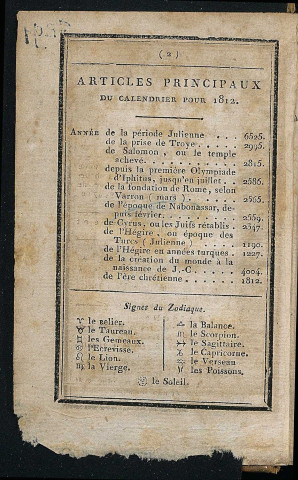 ( 2 )
ARTICLES PRINCIPAUX
DU CALENDRIER POUR 1812.
ANNÉE de la période Julienne . . . 6525.
de la prise de Troye. . . . 2995.
de Salomon, ou le temple
achevé. . . . 2815.
depuis la première Olympiade
d'Iphitus, jusqu'en juillet . . 2586.
de la fondation de Rome, selon
Varron ( mars ) . . . 2565.
de l'époque de Nabonassar, de-
puis février. . . . 2559.
de Cyrus, ou les Juifs rétablis . 2347.
de l'Hégire, ou époque des
Turcs ( Julienne ) . . . 1190.
de l'Hégire en années turques . 1227.
de la création du monde à la
naissance de J.-C. . . . 4004.
de l'ère chrétienne. . . . 1812.
Signes du Zodiaque.
♈ le Belier.
♉ le Taureau.
♊ les Gemeaux.
♋ l'Ecrevisse.
♌ le Lion.
♍ la Vierge.
♎ la Balance.
♏ le Scorpion.
♐ le Sagittaire.
♑ le Capricorne.
♒ le Verseau
♓ les Poissons.
le Soleil.